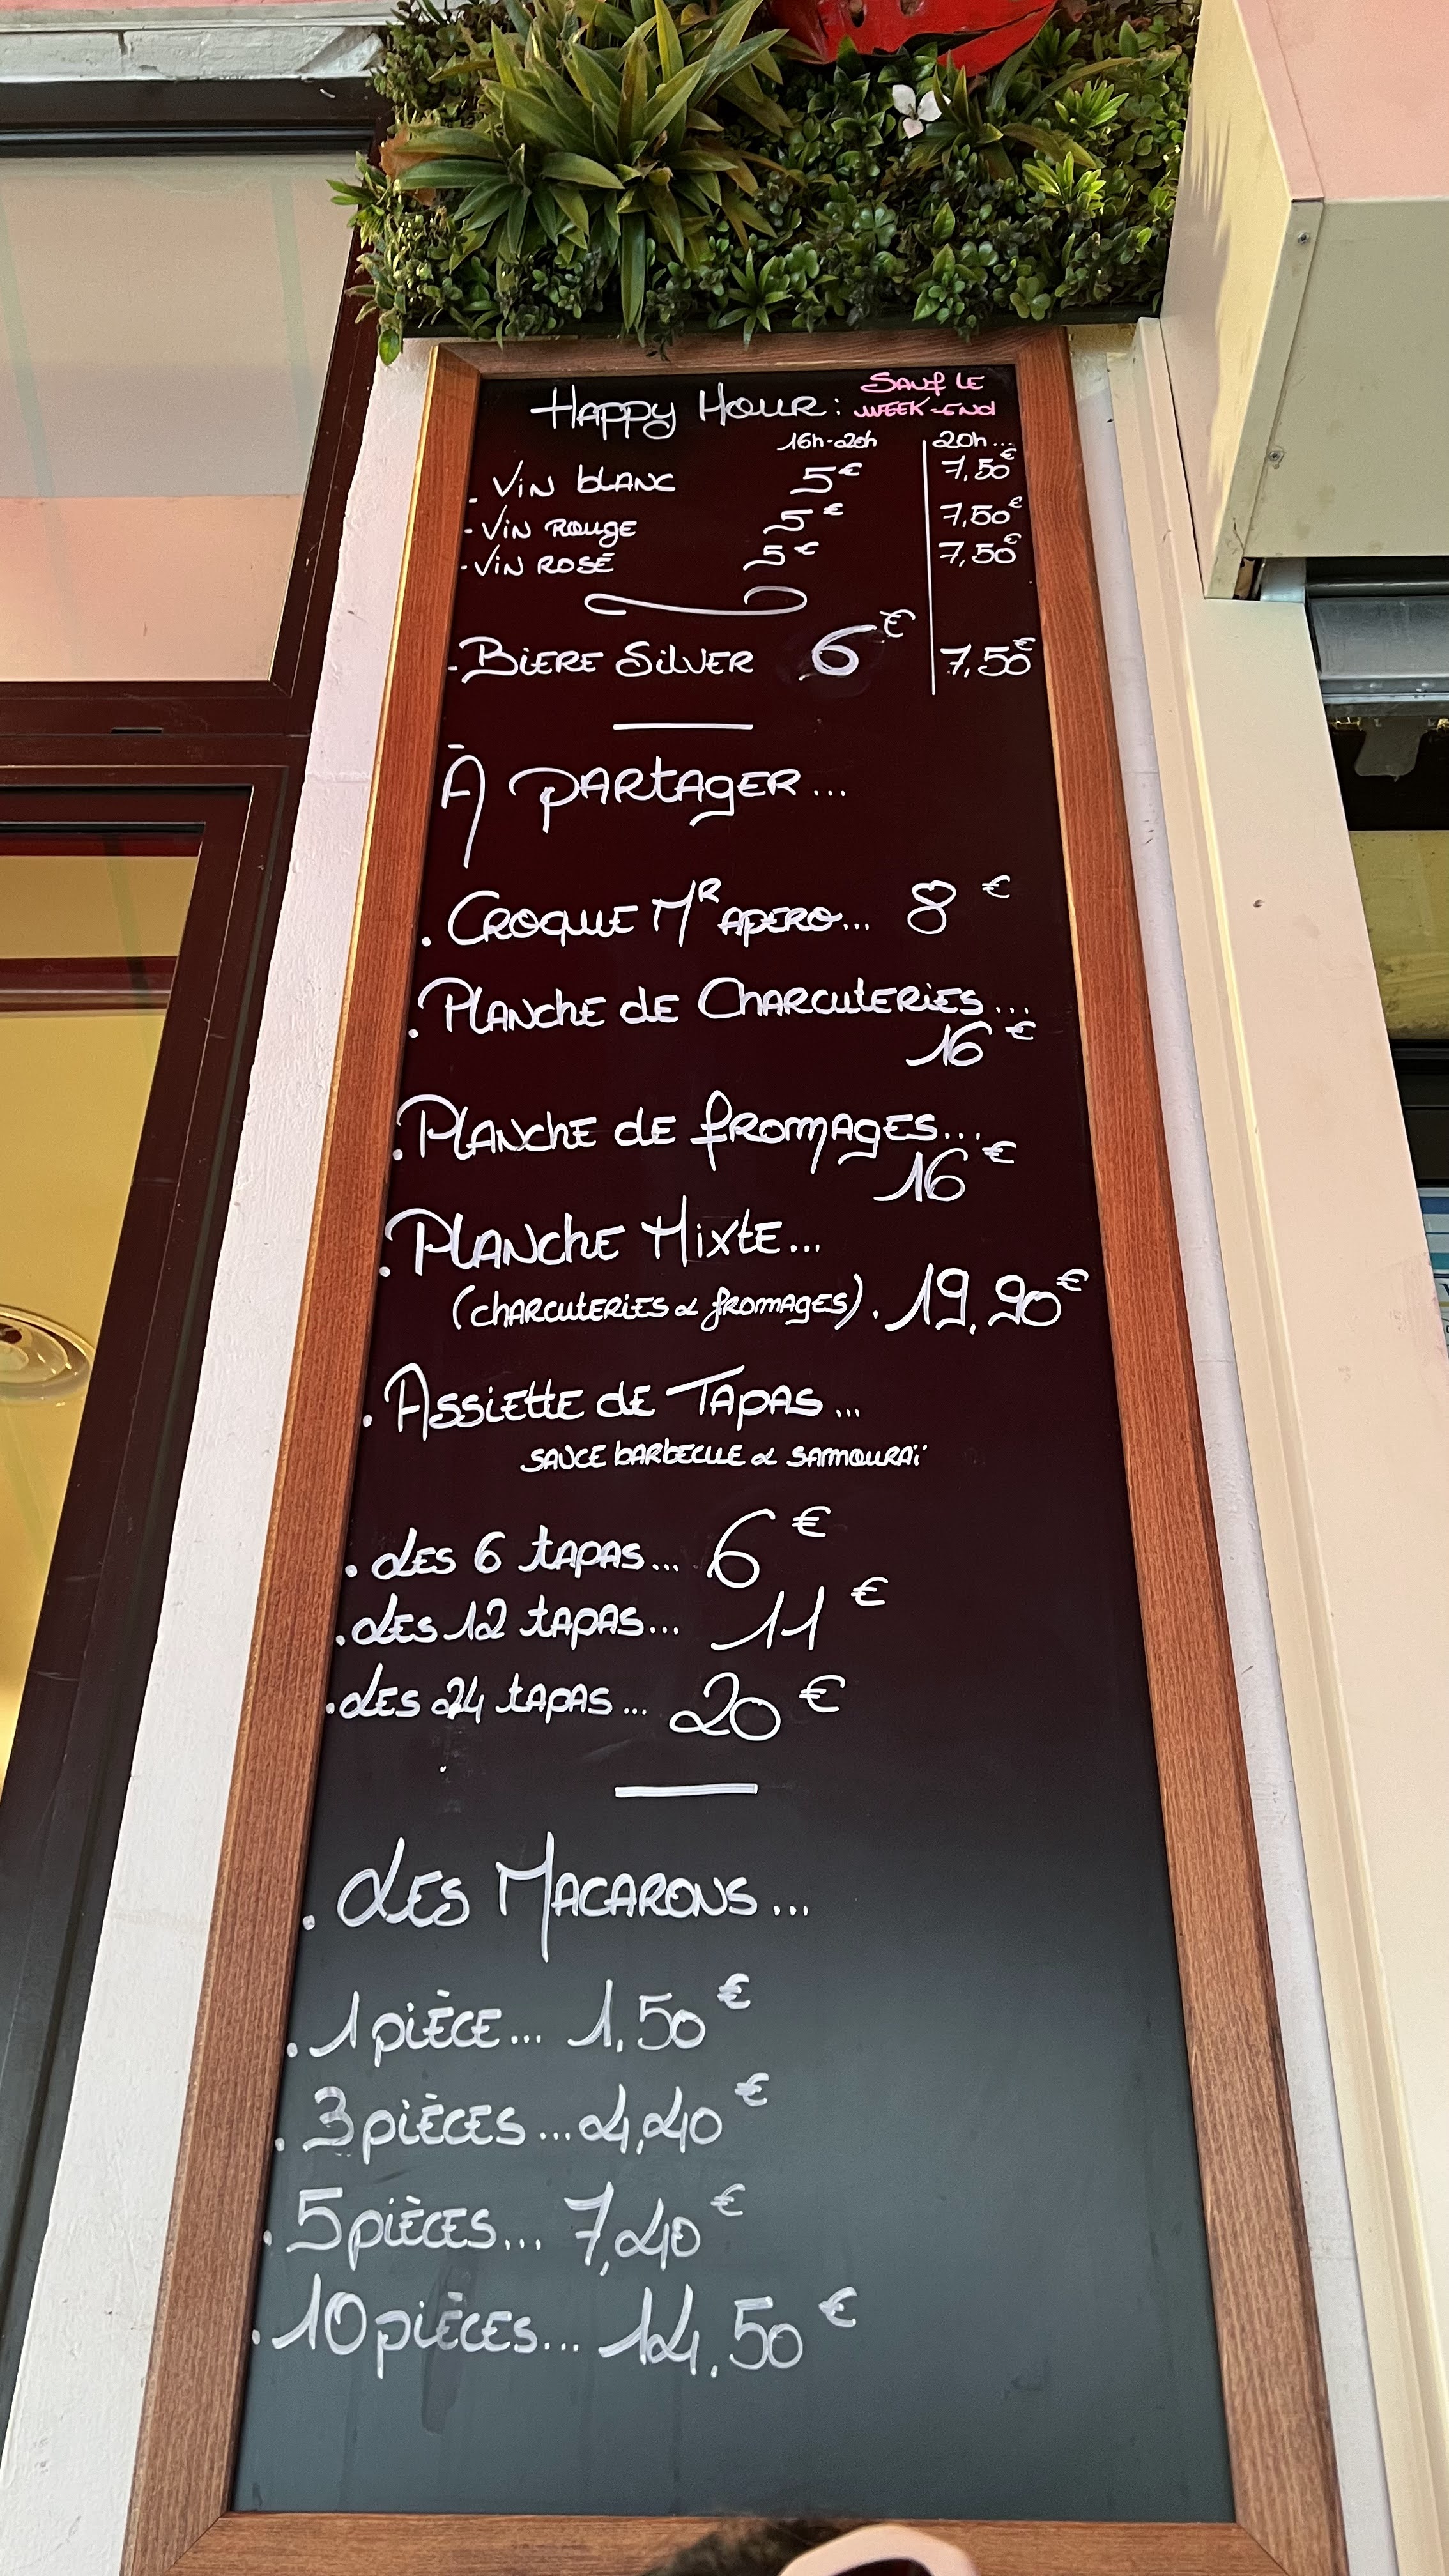 Happy Hour : Sauf le
week-end
16h-20h 20h...
. Vin blanc 5€ 7,50€
- Vin rouge 5€ 7,50€
- Vin rosé 5€ 7,50€
- Biere Silver 6€ 7,50€
À partager...
. Croque Mr apero... 8€
. Planche de Charcuteries...
16€
. Planche de fromages...
16€
. Planche Mixte...
(charcuteries & fromages). 19,90€
. Assiette de Tapas...
sauce barbecue & samouraï
. Les 6 tapas... 6€
. Les 12 tapas... 11€
. Les 24 tapas... 20€
. Les Macarons...
. 1 pièce... 1,50€
. 3 pièces... 4,40€
. 5 pièces... 7,40€
. 10 pièces... 14,50€